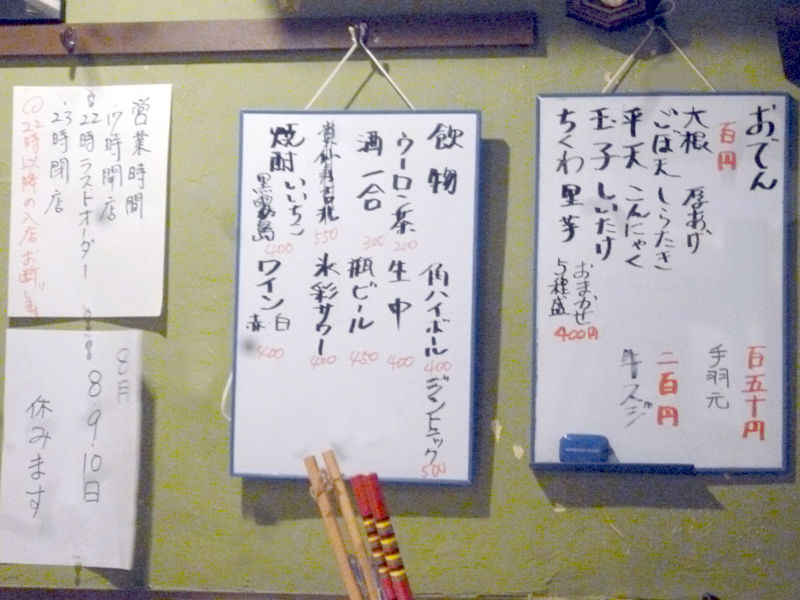 おでん
百円
大根 厚あげ
ごぼ天 しらたき
平天 こんにゃく
玉子 しいたけ
ちくわ 里芋
おまかせ
5種盛
400円
百五十円
手羽元
二百円
牛スジ
飲物
ウーロン茶
200
酒一合
300
550
焼酎 いいちこ
黒霧島
400
角ハイボール
400
ジントニック
500
生中
400
瓶ビール
450
氷彩サワー
400
ワイン 白
赤
400
営業時間
17時開店
22時ラストオーダー
23時閉店
22時以降の入店お断り
8月
8.9.10日
休みます